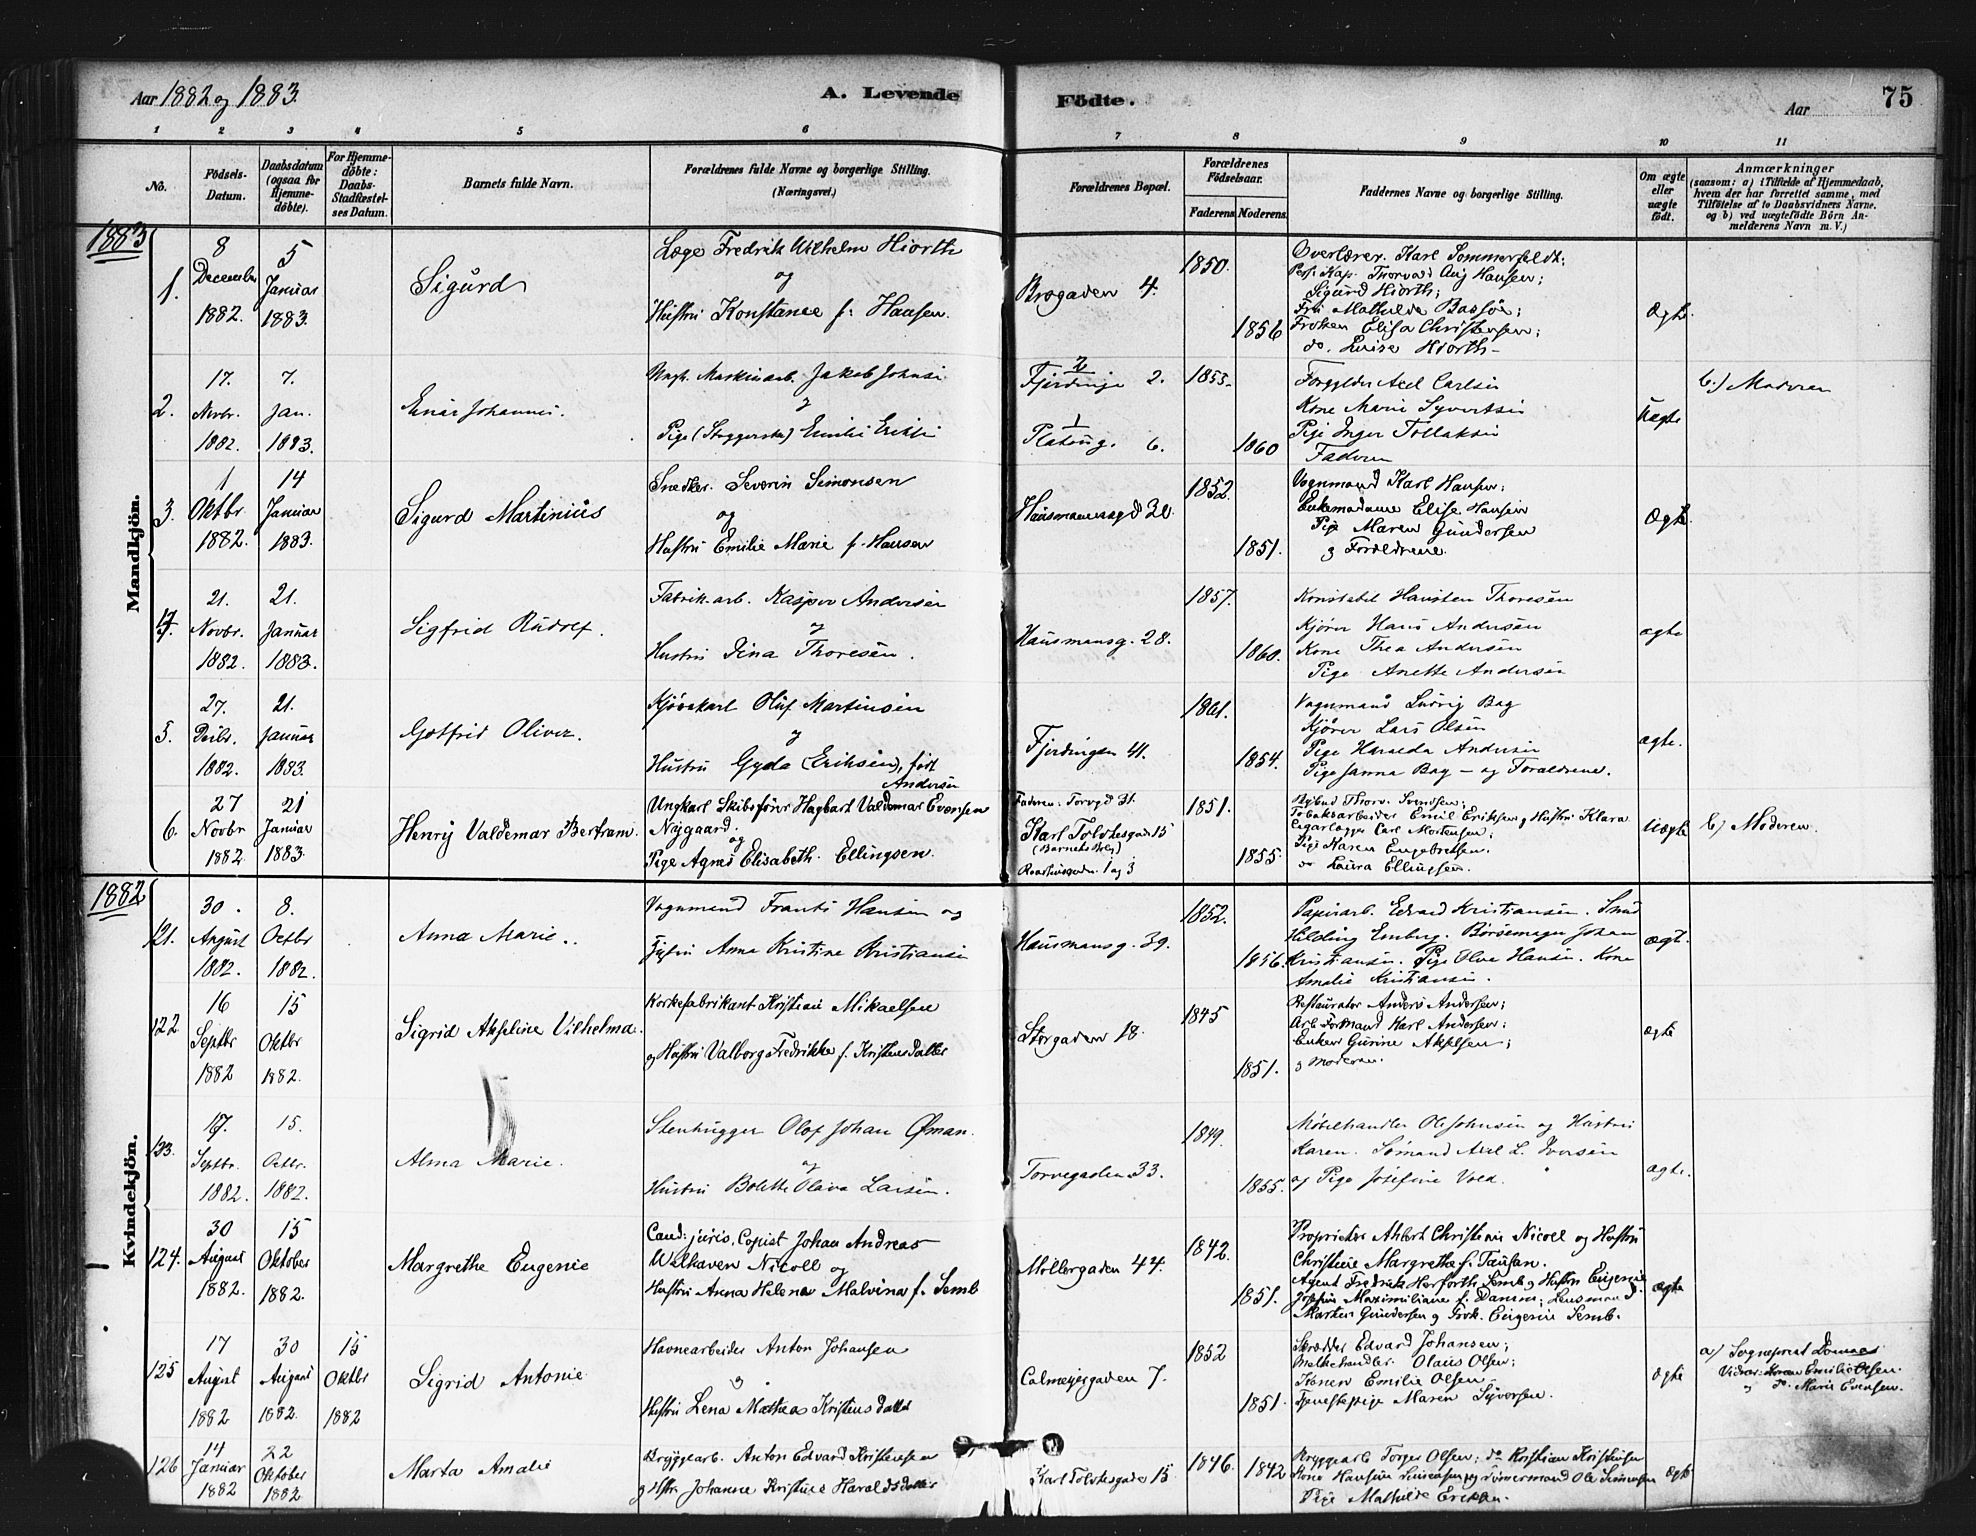 Aar 1882 og 1883. A. Levende Födte. Aar 75
1 2 3 4 5 6 7 8 9 10 11
No.
Födsels-Datum.
Daabsdatum (ogsaa for Hjemme-döbte).
For Hjemme-döbte: Daabs-Stadfæstel-ses Datum.
Barnets fulde Navn.
Forældrenes fulde Navne og borgerlige Stilling. (Næringsvei.)
Forældrenes Bopæl.
Forældrenes Födselsaar.
Faderens. Moderens.
Faddernes Navne og borgerlige Stilling.
Om ægte eller uægte födt.
Anmærkninger
(saasom: a) i Tilfælde af Hjemmedaab, hvem der har forrettet samme, med Tilföielse af to Daabsvidners Navne. og b) ved uægtefödte Börn An-melderens Navn m. V.)
1883
Mandkjön.
1. 8 December 1882. 5 Januar 1883. Sigurd
Læge Fredrik Wilhelm Hiorth
og
Hustru Konstance f. Hansen.
Brogaden 4. 1850. 1856
Overlærer Karl Sommerfeldt;
Pers. Kap. Thorvald Aug Hansen;
Sigurd Hiorth;
Fru Mathilde Bassøe;
Frøken Elisa Christensen;
do. Luise Hiorth
Ægte.
2. 17. Novbr. 1882. 7. Jan. 1883. Einar Johannes.
Ungk. Maskinarb. Jakob Johnsen
og
Pige (Stryggerske) Emilie Eriksen
Fjerdinge 2.
Platoug. 6.
1855. 1860
Forgylder Axel Carlsen
Kone Marie Syvertsen
Pige Inger Tollaksen
Faderen
Uægte
b.) Moderen
3. 1 Oktbr. 1882. 14 Januar 1883. Sigurd Martinius
Snedker Severin Simonsen
og
Hustru Emilie Marie f. Hansen
Hausmannsgd 30. 1852. 1851.
Vognmand Karl Hansen;
Enkemadame Elise Hansen
Pige Maren Gundersen
og Forældrene.
Ægte.
4. 21. Novbr. 1882. 21. Januar 1883. Sigfrid Rudolf.
Fabrik.arb. Kasper Andersen
og
Hustru Dina Thoresen.
Hausmansg. 28. 1857. 1860.
Konstabel Hansten Thoresen
Kjører Hans Andersen
Kone Thea Andersen
Pige Anette Andersen
ægte
5. 27. Decbr. 1882. 21. Januar 1883. Gotfrid Oliver.
Kjørekarl Oluf Martinsen
og
Hustru Gyda (Eriksen), født
Andersen
Fjerdingen 41. 1861. 1854.
Vognmand Ludvig Bag
Kjører Lars Olsen
Pige Haralda Andersen
Pige Janna Bag – og Forældrene.
ægte.
6. 27 Novbr 1882 21 Januar 1883. Henry Valdemar Bertram.
Ungkarl Skibsfører Hagbart Valdemar Evensen
Nygaard.
og
Pige Agnes Elisabeth Ellingsen.
Faderen: Torvgd 31.
Karl Tolvtesgade 15
(Barnets Bolig)
1 og 3
1851. 1855.
Thorv. Svendsen;
Tobaksarbeider Emil Eriksen og Hustru Klara
Carl Mortensen;
Pige Karen Engebretsen.
do Laura Ellingsen.
Uægte
b) Moderen.
1882
Kvindekjön.
121. 30. August 1882. 8. Octbr 1882. Anna Marie.
Vognmand Frants Hansen og
Hustru Anna Kristine Kristiansen
Hausmansg. 39. 1852. 1856.
Papirarb. Edvard Kristiansen. Smed
Hilding Enberg. Børsemager Johan
Kristiansen. Pige Olva Hansen. Kone
Amalie Kristiansen.
ægt.
122. 16 Septbr 1882 15 Oktbr 1882. Sigrid Akseline Vilhelma.
Korkefabrikant Kristian Mikaelsen
og Hustru Valborg Fredrikke f. Kristensdatter
Storgaden 18. 1845 1851.
Restauratør Anders Andersen;
Arb. Formand Karl Andersen;
Enken Gurine Akselsen;
og moderen.
ægte
123. 17. Septbr. 1882. 15. Octbr. 1882. Alma Marie.
Stenhugger Olof Johan Øman.
og
Hustru Bolette Olava Larsen.
Torvegaden 33. 1849. 1855.
Møbelhandler Ole Johnsen og Hustru
Karen. Sømand Axel L. Iversen
og Pige Josefine Vold.
ægte.
124. 30 August 1882. 15 Oktober 1882. Margrethe Eugenie
Cand: juris, Copist Johan Andreas
Welhaven Nicoll og
Hustru Anna Helena Malvina f. Semb
Møllergaden 44. 1842. 1851.
Proprietær Albert Christian Nicoll og Hustru
Christine Margrethe f. Tausan.
Agent Fredrik Herforth Semb og Hustru Eugenie
Josefine Maximiliane f. Damm; Lensmand
Marten Gundersen og Frøk. Eugenie Semb.
ægte
125 17 August 1882 30 August 1882. 15 Oktbr 1882 Sigrid Antonie
Havnearbeider Anton Johansen
og
Hustru Lena Mathea Kristensdatter
Calmeyersgaden 7. 1852 1851.
Skrædder Edvard Johansen;
Melkehandler Olaus Olsen;
Konen Emilie Olsen
Tjenestepige Maren Syversen.
ægte
a) Sogneprest
Vidner: Konen Emilie Olsen
og do. Marie Evensen.
126 14 Januar 1882 22 Oktober 1882 Marta Amalie
Bryggearb. Anton Edvard Kristensen
og Hstr. Johanne Kristine Haraldsdatter
Karl Tolvtesgade 15 1846. 1842
Bryggearb Torger Olsen; do Kristian Kristensen
og Tømmermand Ole Simensen
Pige Mathilde Eriksen.
ægte